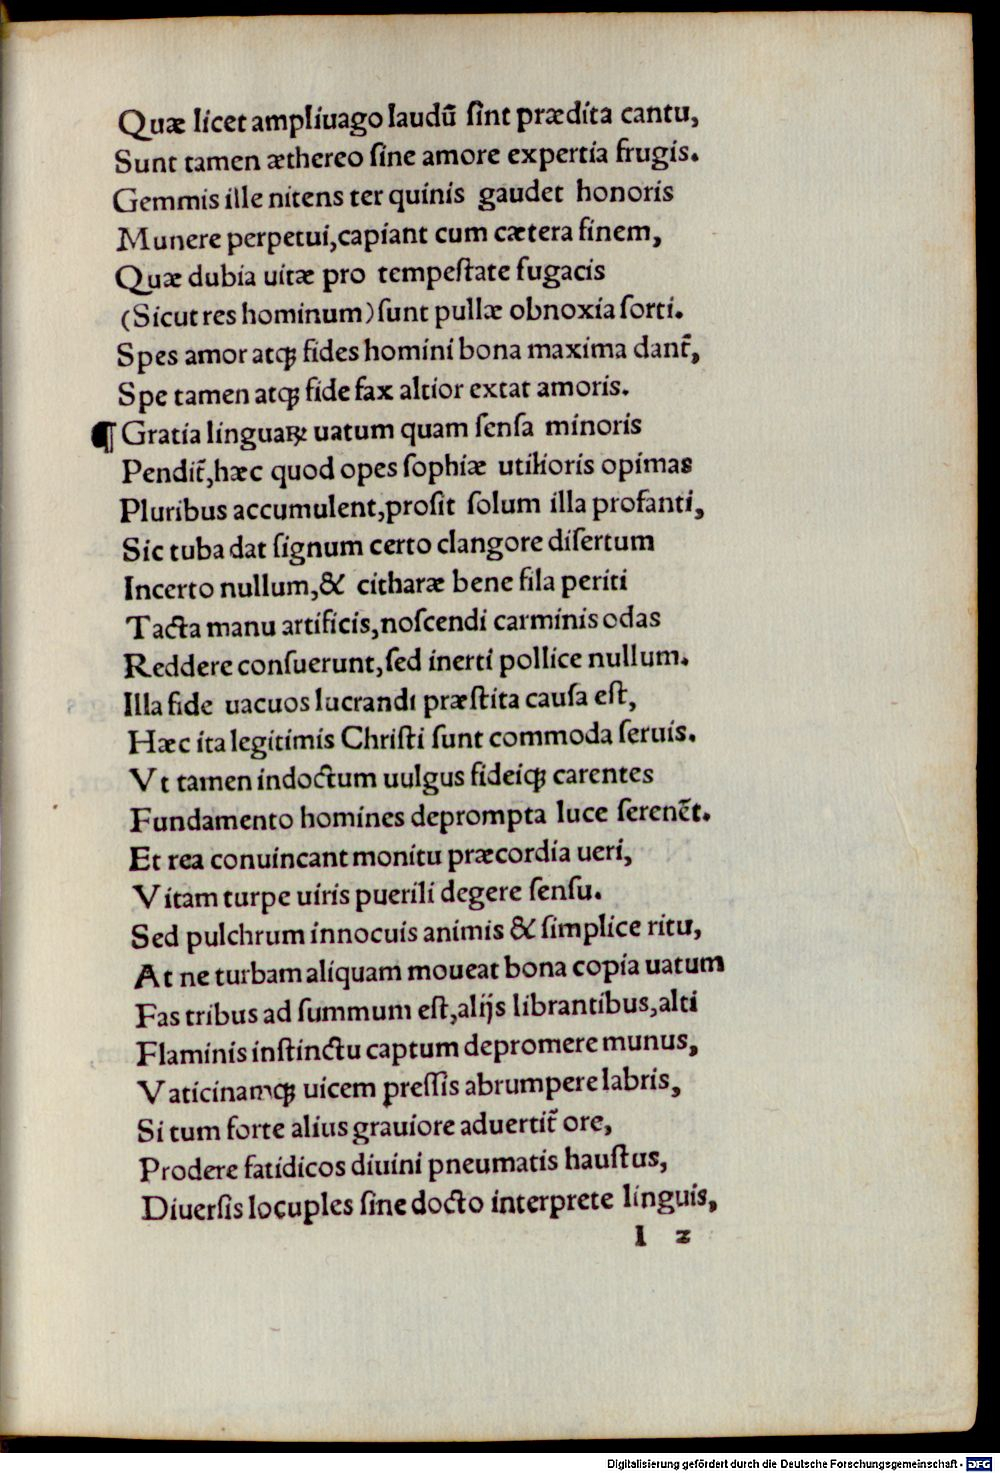 Quæ licet ampliuago laudũ ſint prædita cantu,
Sunt tamen æthereo ſine amore expertia frugis.
Gemmis ille nitens ter quinis gaudet honoris
Munere perpetui,capiant cum cætera finem,
Quæ dubia uitæ pro tempeſtate fugacis
(Sicut res hominum)ſunt pullæ obnoxia ſorti.
Spes amor atqꝫ fides homini bona maxima dant᷑,
Spe tamen atqꝫ fide fax altior extat amoris.
¶ Gratia linguaꝝ uatum quam ſenſa minoris
Pendit᷑,hæc quod opes ſophiæ utilioris opimas
Pluribus accumulent,proſit ſolum illa profanti,
Sic tuba dat ſignum certo clangore diſertum
Incerto nullum,& citharæ bene fila periti
Tacta manu artificis,noſcendi carminis odas
Reddere conſuerunt,ſed inerti pollice nullum.
Illa fide uacuos lucrandi præſtita cauſa eſt,
Hæc ita legitimis Chriſti ſunt commoda ſeruis.
Vt tamen indoctum uulgus fideiqꝫ carentes
Fundamento homines deprompta luce ſerenẽt.
Et rea conuincant monitu præcordia ueri,
Vitam turpe uiris puerili degere ſenſu.
Sed pulchrum innocuis animis & ſimplice ritu,
At ne turbam aliquam moueat bona copia uatum
Fas tribus ad ſummum eſt,alijs librantibus,alti
Flaminis inſtinctu captum depromere munus,
Vaticinamqꝫ uicem preſſis abrumpere labris,
Si tum forte alius grauiore aduertit᷑ ore,
Prodere fatidicos diuini pneumatis hauſtus,
Diuerſis locuples ſine docto interprete linguis,
I 2
Digitalisierung gefördert durch die Deutsche Forschungsgemeinschaft - DFG